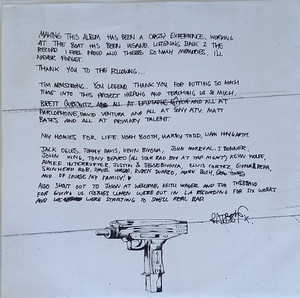 MAKING THIS ALBUM HAS BEEN A CRAZY EXPERIENCE, WORKING
AT THE BOAT HAS BEEN INSANE. LISTENING BACK 2 THE
RECORD I FEEL PROUD AND THERES SO MANY MEMORIES, I'LL
NEVER FORGET.
THANK YOU TO THE FOLLOWING...
TIM ARMSTRONG. YOU LEGEND THANK YOU FOR PUTTING SO MUCH
TIME INTO THIS PROJECT HELPING AND TEACHING US SO MUCH,
BRETT GUREWITZ AND ALL AT EPITAPH AND ALL AT
PARLOPHONE, DAVID VENTURA AND ALL AT SONY ATV MATT
BATES AND ALL AT PRIMARY TALENT.
MY HOMIES FOR LIFE. NOAH BOOTH, HARRY TODD, LIAM HAYGARTH.
JACK OGLES, TOMMY DAVIS, KEVIN BIVONA, JOHN MORRICAL, J BONNER,
JOHN KING, TONY BEARD KEVIN WOLFE,
AIMEE INTERRUPTER, JUSTIN & JESSE BIVONA, ELVIS CORTEZ,
SKINHEAD ROB, DAVEL RUBEN DURAZO, MARK BUSH,
AND OF COURSE MY FAMILY!
ALSO SHOUT OUT TO JASON AT WELCOME, KEITH AND THE
FOR GIVING US CLOTHES WHEN WE WERE OUT IN LA RECORDING FOR SIX WEEKS
AND WE WERE STARTING TO SMELL REAL BAD